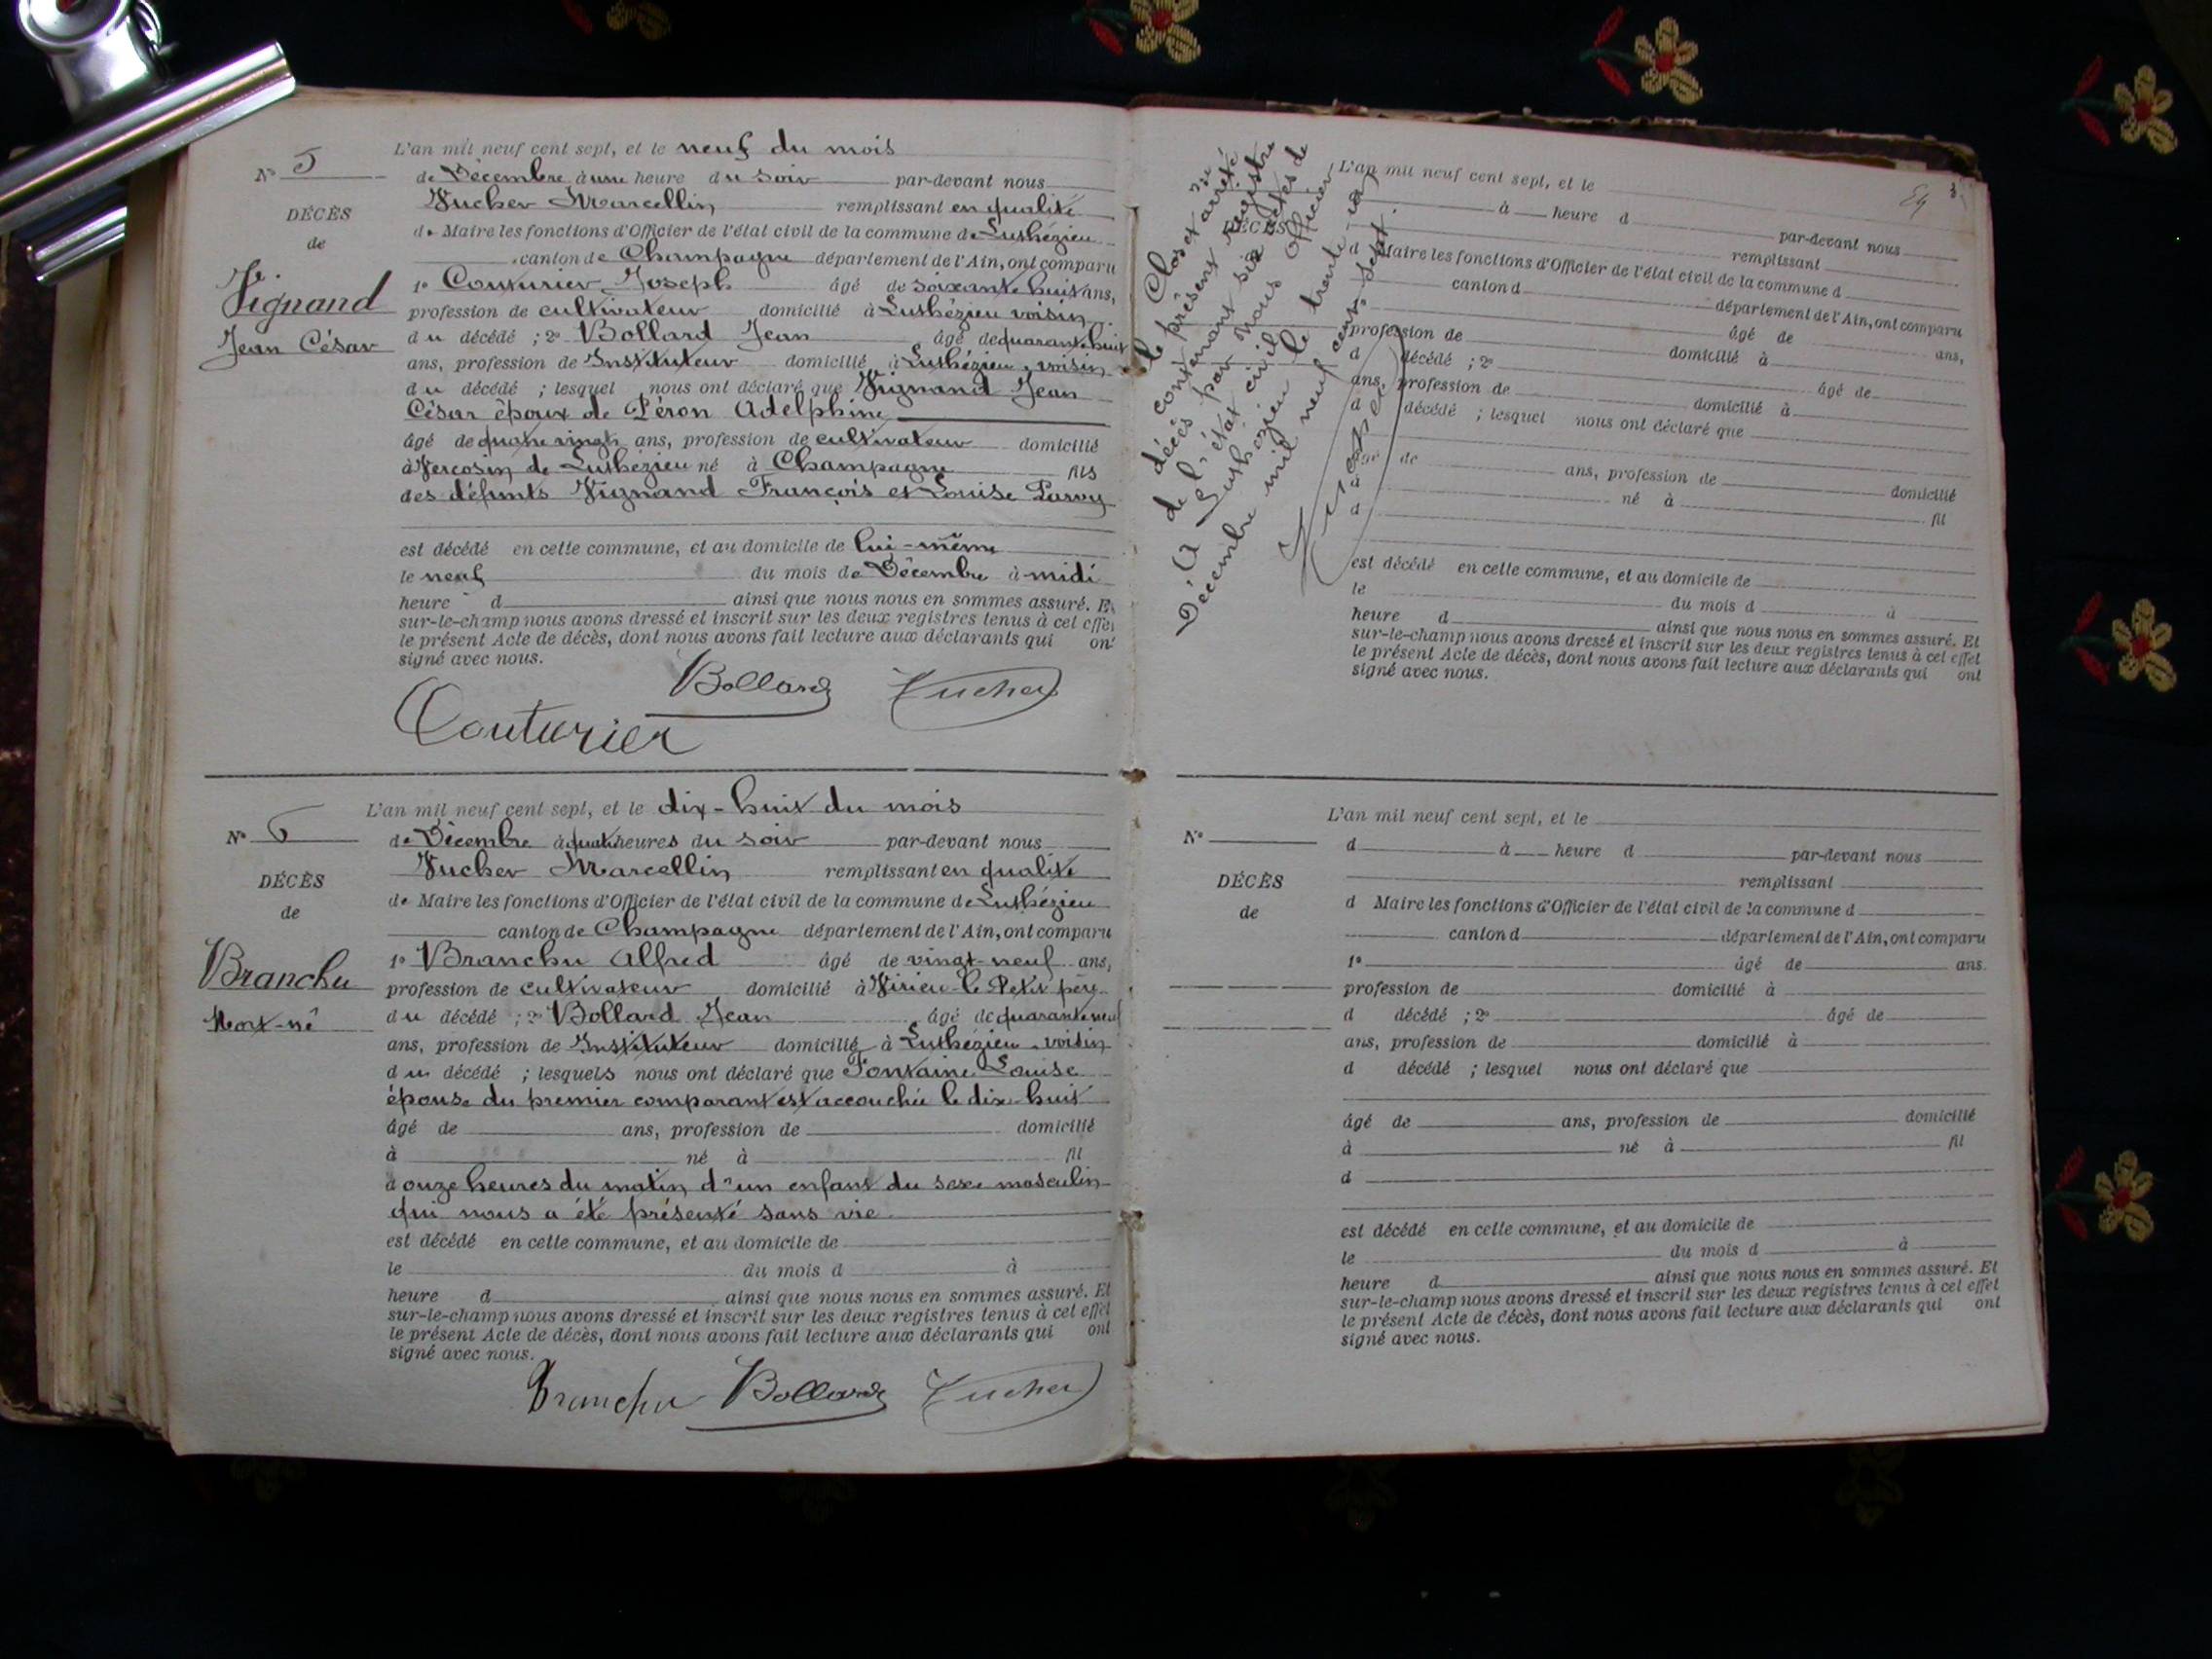 L'an mil neuf cent sept, et le neuf du mois
N° 5
de Décembre à une heure du soir par-devant nous
Vucher Marcellin remplissant en qualité
DÉCÈS
de Maire les fonctions d'Officier de l'état civil de la commune de Luthézieu
de
canton de Champagne département de l'Ain, ont comparu
Vignand
Jean César
1° Couturier Joseph âgé de soixante huit ans,
profession de cultivateur domicilié à Luthézieu voisin
du décédé ; 2° Bollard Jean âgé de quarante huit
ans, profession de Instituteur domicilié à Luthézieu, voisin
du décédé ; lesquel nous ont déclaré que Vignand Jean
César époux de Péron Adelphine
âgé de quatre vingts ans, profession de cultivateur domicilié
à Vercosin de Luthézieu né à Champagne fils
des défunts Vignand François et Louise
est décédé en cette commune, et au domicile de lui-même
le neuf du mois de Décembre à midi
heure d ainsi que nous nous en sommes assuré. Et
sur-le-champ nous avons dressé et inscrit sur les deux registres tenus à cet effet
le présent Acte de décès, dont nous avons fait lecture aux déclarants qui ont
signé avec nous.
Bollard Vucher
Couturier
L'an mil neuf cent sept, et le dix-huit du mois
N° 6
de Décembre à quatre heures du soir par-devant nous
Vucher Marcellin remplissant en qualité
DÉCÈS
de Maire les fonctions d'Officier de l'état civil de la commune de Luthézieu
de
canton de Champagne département de l'Ain, ont comparu
Branchu
Mort-né
1° Branchu Alfred âgé de vingt-neuf ans,
profession de cultivateur domicilié à Virieu-le-Petit père
du décédé ; 2° Bollard Jean âgé de quarante neuf
ans, profession de Instituteur domicilié à Luthézieu, voisin
du décédé ; lesquels nous ont déclaré que Fontaine Louise
épouse du premier comparant est accouchée le dix-huit
âgé de ans, profession de domicilié
à né à fil
à onze heures du matin d'un enfant du sexe masculin
qui nous a été présenté sans vie.
est décédé en cette commune, et au domicile de
le du mois d à
heure d ainsi que nous nous en sommes assuré. Et
sur-le-champ nous avons dressé et inscrit sur les deux registres tenus à cet effet
le présent Acte de décès, dont nous avons fait lecture aux déclarants qui ont
signé avec nous.
Branchu Bollard Vucher
Clos et arrêté
le présent registre
contenant six actes de
décès par nous Officier
de l'état civil
À Luthézieu le trente un
Décembre mil neuf cent sept.
Vucher
L'an mil neuf cent sept, et le
à heure d par-devant nous
DÉCÈS
remplissant
d Maire les fonctions d'Officier de l'état civil de la commune d
canton d département de l'Ain, ont comparu
âgé de ans,
profession de domicilié à
d décédé ; 2° âgé de
ans, profession de domicilié à
d décédé ; lesquel nous ont déclaré que
âgé de ans, profession de domicilié
à né à fil
d
est décédé en cette commune, et au domicile de
le du mois d à
heure d ainsi que nous nous en sommes assuré. Et
sur-le-champ nous avons dressé et inscrit sur les deux registres tenus à cet effet
le présent Acte de décès, dont nous avons fait lecture aux déclarants qui ont
signé avec nous.
L'an mil neuf cent sept, et le
N°
d à heure d par-devant nous
remplissant
DÉCÈS
d Maire les fonctions d'Officier de l'état civil de la commune d
de
canton d département de l'Ain, ont comparu
1° âgé de ans.
profession de domicilié à
d décédé ; 2° âgé de
ans, profession de domicilié à
d décédé ; lesquel nous ont déclaré que
âgé de ans, profession de domicilié
à né à fil
d
est décédé en cette commune, et au domicile de
le du mois d à
heure d ainsi que nous nous en sommes assuré. Et
sur-le-champ nous avons dressé et inscrit sur les deux registres tenus à cet effet
le présent Acte de décès, dont nous avons fait lecture aux déclarants qui ont
signé avec nous.